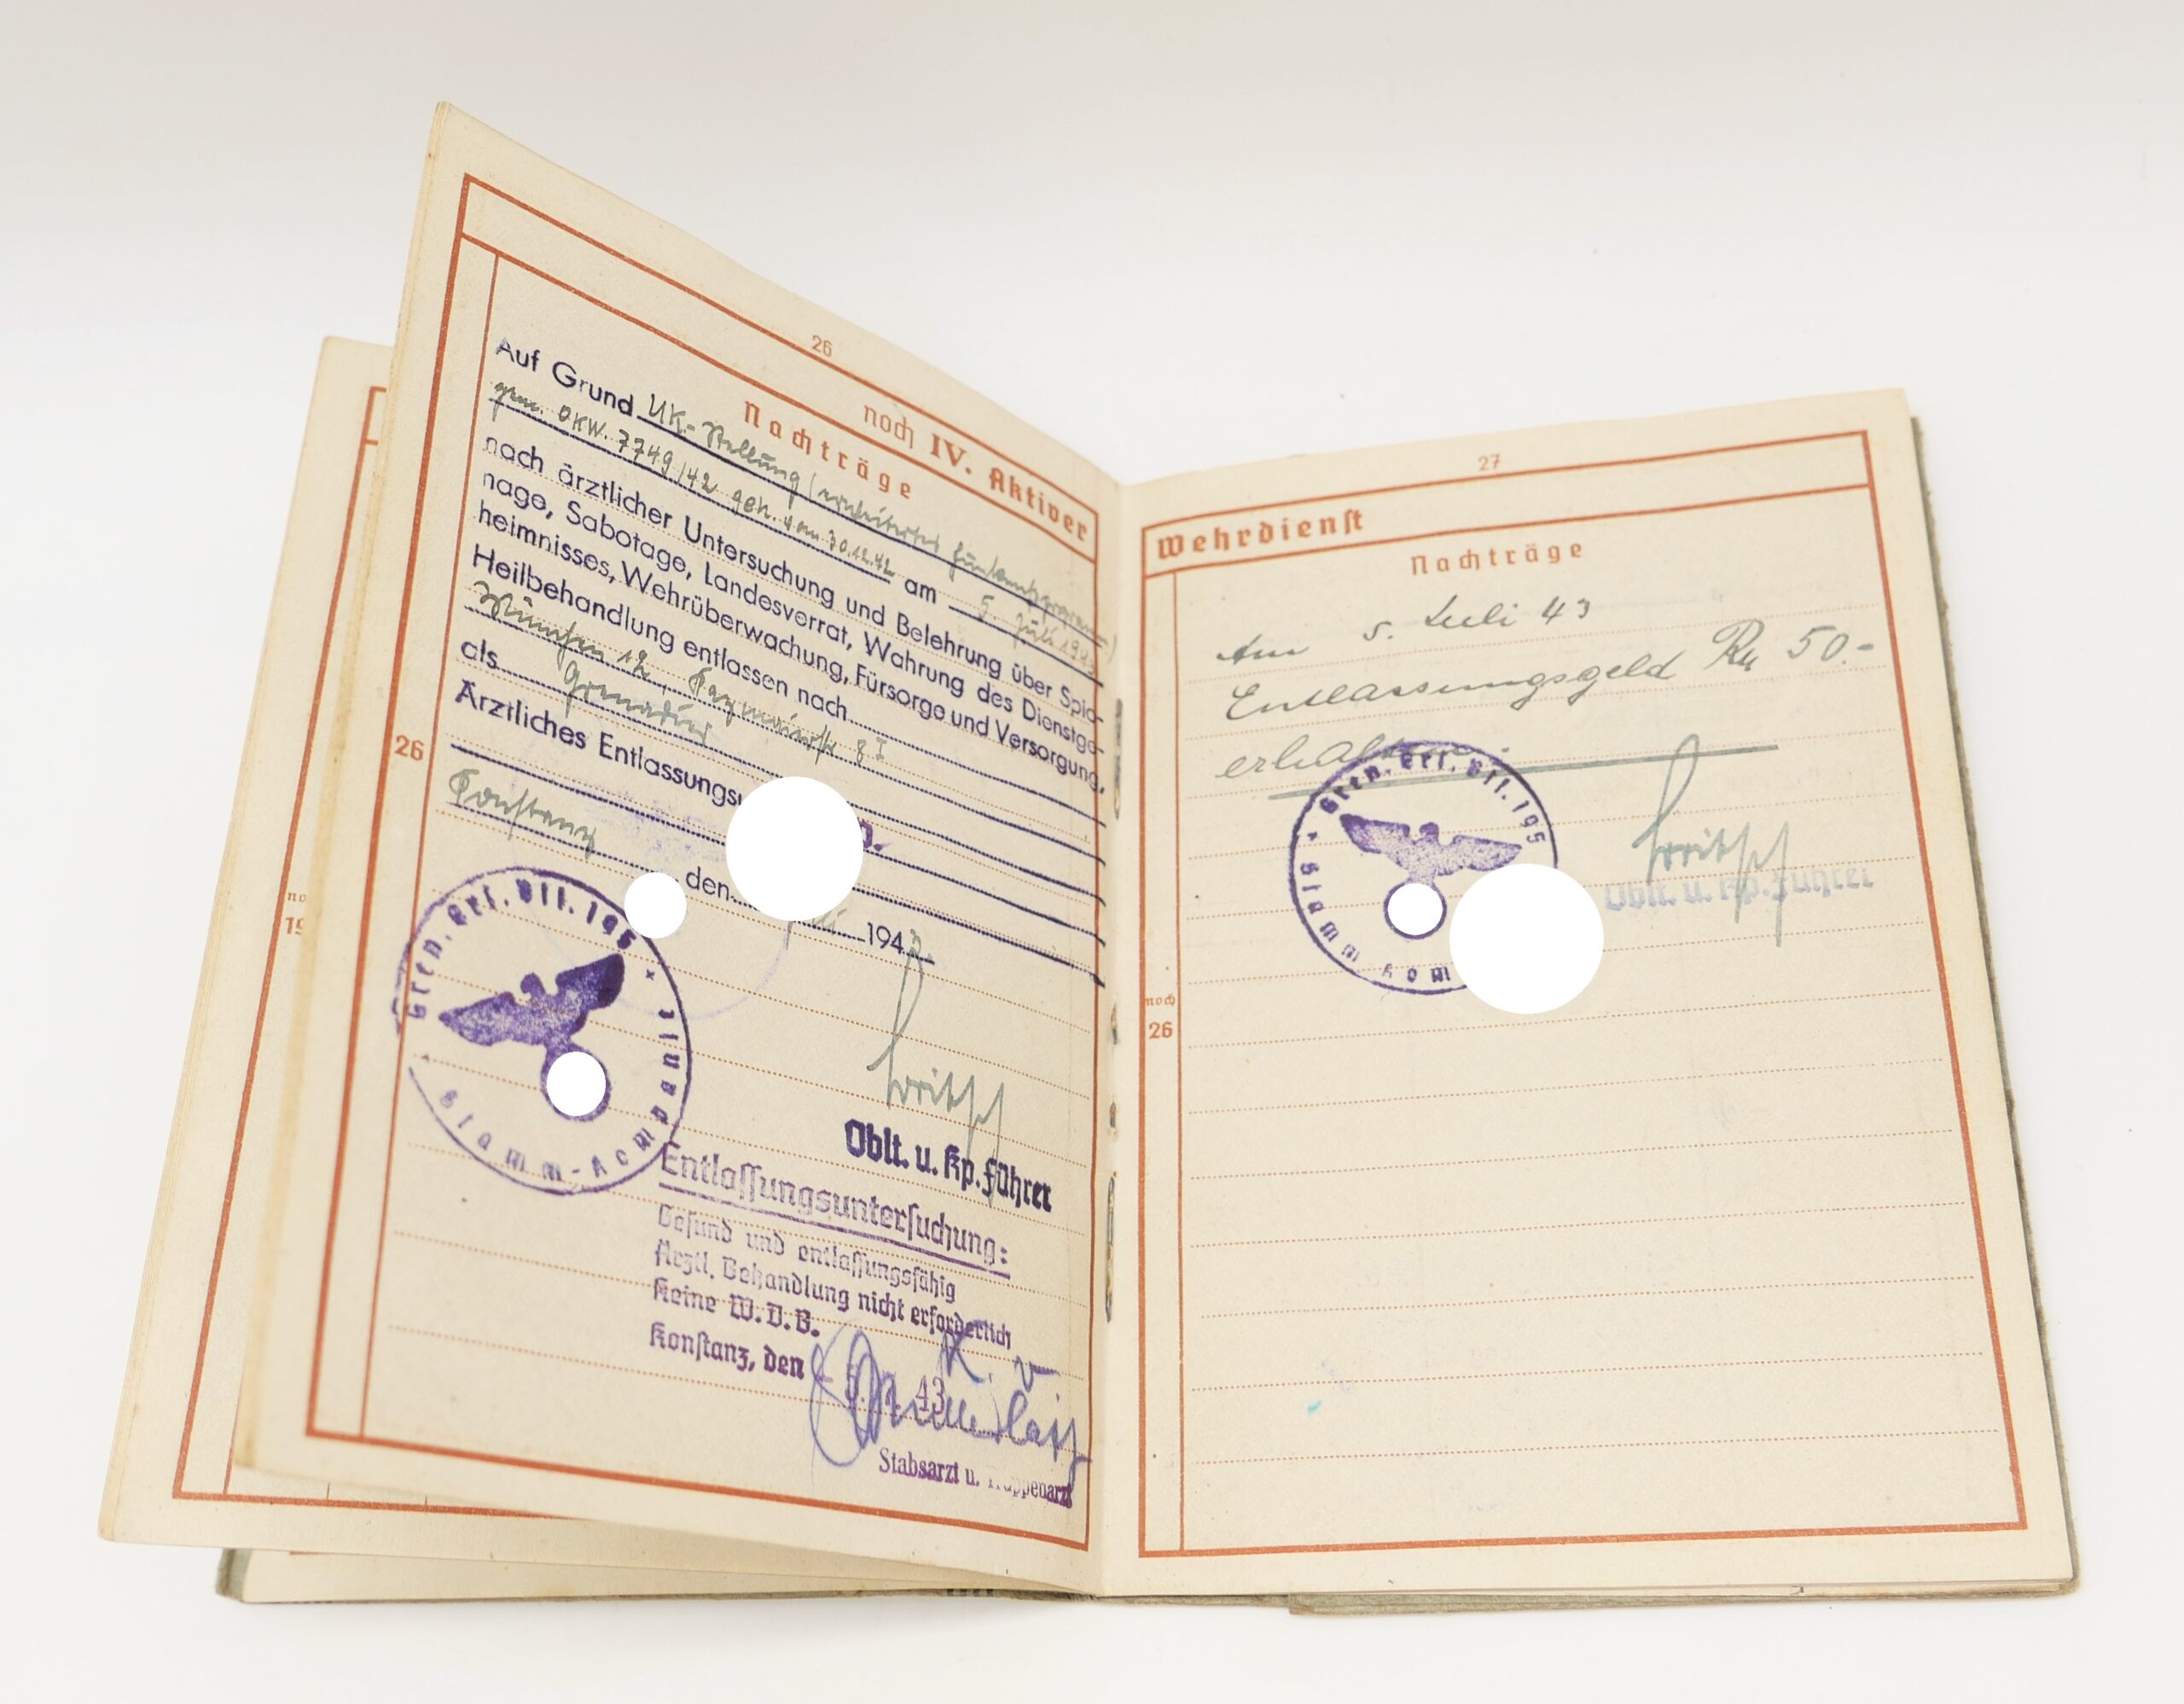 26
noch IV. Aktiver
Nachträge
Auf Grund UK.-Stellung (erweitertes Funkmessprogramm)
gem. OKW. 7749/42 geh. vom 30.12.42 am 5. Juli 1943
nach ärztlicher Untersuchung und Belehrung über Spio-
nage, Sabotage, Landesverrat, Wahrung des Dienstge-
heimnisses, Wehrüberwachung, Fürsorge und Versorgung,
Heilbehandlung entlassen nach
München 12, 8 I
als Grenadier
Ärztliches Entlassungsu
Konstanz, den 194
26
Gren. Ers. Btl. 195
Stamm-Kompanie
Oblt. u. Kp. Führer
Entlassungsuntersuchung:
Gesund und entlassungsfähig
Ärztl. Behandlung nicht erforderlich
Keine W.D.B.
Konstanz, den - 5. 43
Stabsarzt u. Truppenarzt
noch
19
27
Wehrdienst
Nachträge
Am 5. Juli 43
Entlassungsgeld RM 50.-
erhalten.
Gren. Ers. Btl. 195
Stamm Kom
Oblt. u. Kp. Führer
noch
26